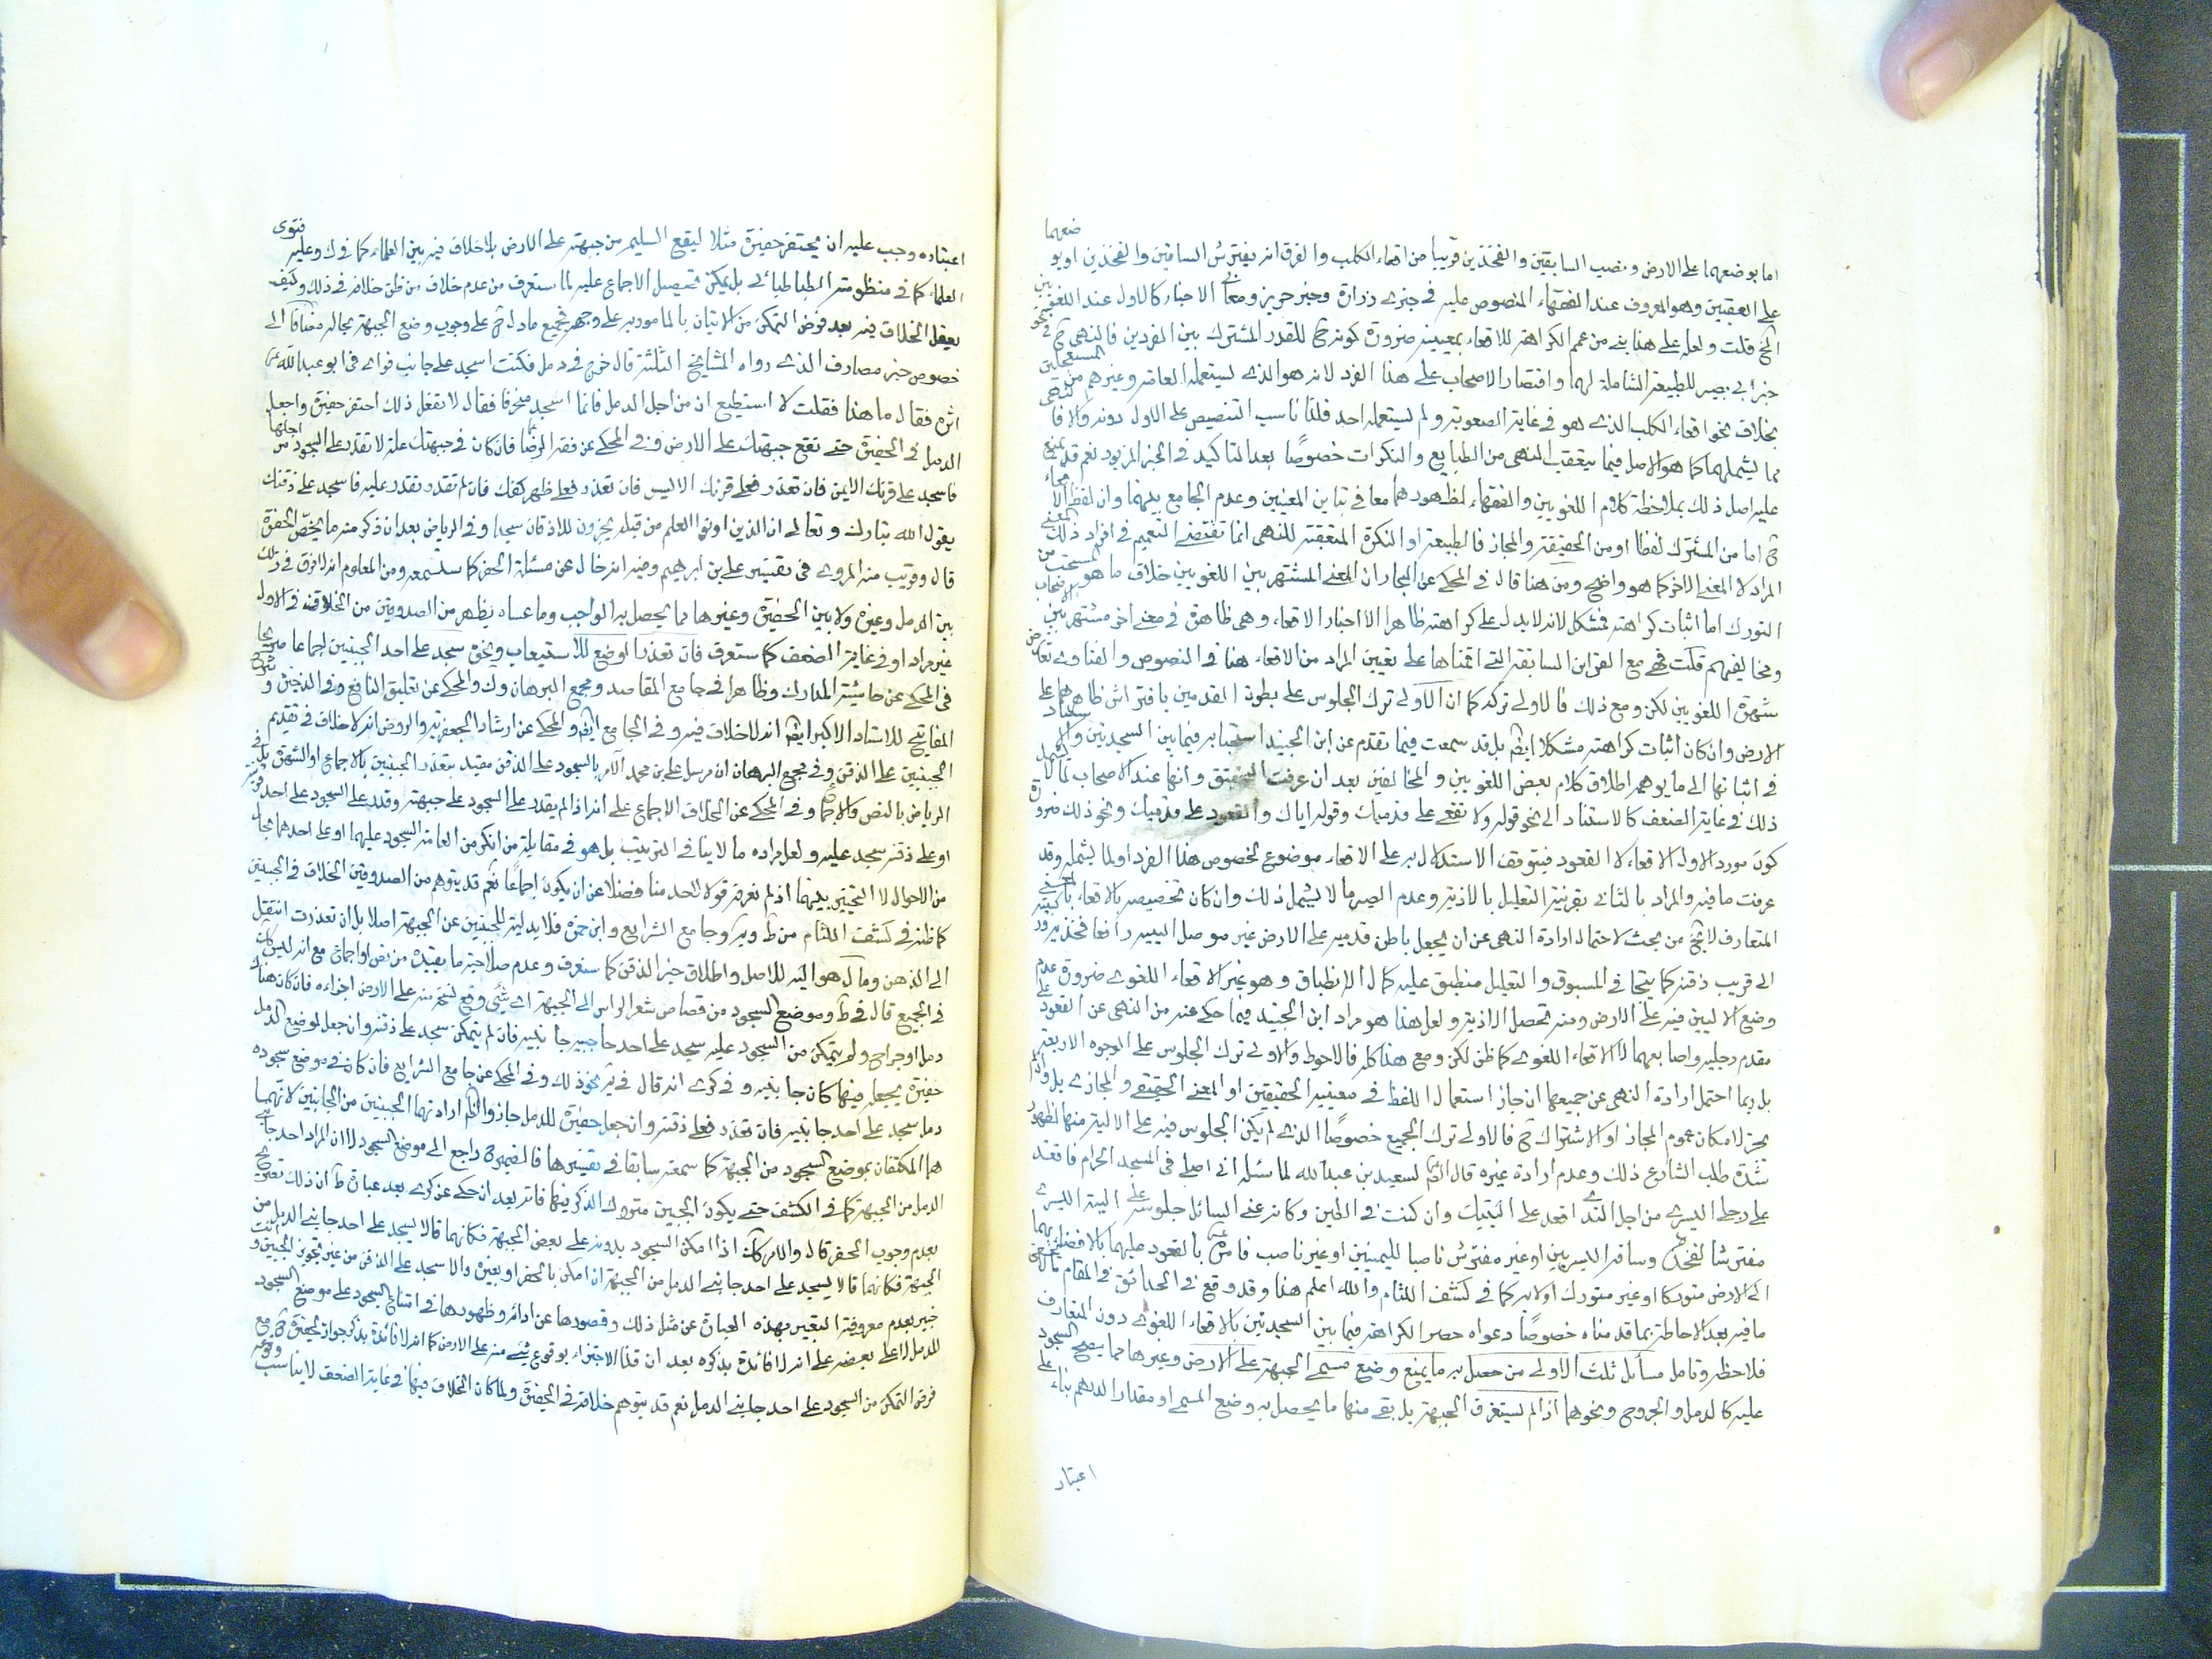 اما بوضعهما على الارض ونصب الساقين والفخذين قريبا من اقعاء الكلب والفرق انه يفترش الساقين والفخذين او بوضعهما
على العقبين وهو المعروف عند الفقهاء المنصوص عليه في خبري زرارة وخبر حريز ومعاني الاخبار كالاول عند اللغويين
الخ قلت ولعله على هذا بنى من عمم الكراهة للاقعاء بمعنييه ضرورة كونه ح للقدر المشترك بين الفردين فالنهي ح في نحو
خبر ابي بصير للطبيعة الشاملة لهما واقتصار الاصحاب على هذا الفرد لانه هو الذي يستعمله العامة وغيرهم من المستعجلين
بخلاف نحو اقعاء الكلب الذي هو في غاية الصعوبة ولم يستعمله احد فلذا ناسب التنصيص على الاول دونه والا فالنهي
مما يشملهما كما هو الاصل فيما يتعقب النهي من الطبايع والنكرات خصوصًا بعد التاكيد في الخبر المزبور نعم قد يمنع
عليه اصل ذلك بملاحظة كلام اللغويين والفقهاء لظهورهما معا في تباين المعنيين وعدم الجامع بينهما وان لفظ الاقعاء
ح اما من المشترك لفظا او من الحقيقة والمجاز فالطبيعة او النكرة المتعقبة للنهي انما تقتضي التعميم في افراد ذلك المعنى
المراد لا المعنى الاخر كما هو واضح ومن هنا قال في المحكي عن البحار ان المعنى المشتهر بين اللغويين خلاف ما هو المستحب من
التورك اما اثبات كراهته فمشكل لانه لا يدل على كراهته ظاهرا الا اخبار الاقعاء وهي ظاهرة في معنى اخر مشتهر بين الاصحاب
ومخالفيهم قلت فهي مع القراين السابقة التي اقمناها على تعيين المراد من الاقعاء هنا في النصوص والفتاوى تعارض
شهرة اللغويين لكن ومع ذلك فالاولى تركه كما ان الاولى ترك الجلوس على بطون القدمين بافتراش ظاهرهما على
الارض وان كان اثبات كراهته مشكلا ايضا بل قد سمعت فيما تقدم عن ابن الجنيد استحبابه فيما بين السجدتين والاستناد
في اثباتها الى ما يوهمه اطلاق كلام بعض اللغويين والمخالفين بعد ان عرفت التحقيق وانها عند الاصحاب لما لا يشمل
ذلك في غاية الضعف كالاستناد الى نحو قوله ولا تقعي على قدميك وقوله اياك والقعود على قدميك ونحو ذلك ضرورة
كون مورد الاول الاقعاء لا القعود فيتوقف الاستدلال به على الاقعاء موضوع لخصوص هذا الفرد او لما يشمله وقد
عرفت ما فيه والمراد بالثاني بقرينة التعليل بالاذية وعدم الصبر ما لا يشمل ذلك وان كان تخصيصه بالاقعاء بالمعنى
المتعارف لا يخ من بحث لاحتمال ارادة النهي عن ان يجعل باطن قدميه على الارض غير موصل اليتيه رافعا فخذيه وركبتيه
الى قريب ذقنه كما يتجافى المسبوق والتعليل منطبق عليه كمال الانطباق وهو غير الاقعاء اللغوي ضرورة عدم
وضع الاليين فيه على الارض ومنه تحصل الاذية ولعل هذا هو مراد ابن الجنيد فيما حكي عنه من النهي عن القعود على
مقدم رجليه واصابعهما لا الاقعاء اللغوي كما ظن لكن ومع هذا كله فالاحوط والاولى ترك الجلوس على الوجوه الاربعة
بل ربما احتمل ارادة النهي عن جميعها ان جاز استعمال اللفظ في معنييه الحقيقيين او المعنى الحقيقي والمجازي بل وان لم
يجز لامكان عموم المجاز او الاشتراك ح فالاولى ترك الجميع خصوصًا الذي لم يكن الجلوس فيه على الالية منها لظهور
شدة طلب الشارع ذلك وعدم ارادة غيره قال الصم لسعيد بن عبد الله لما سئله اني اصلي في المسجد الحرام فاقعد
على رجلي اليسرى من اجل الندى اقعد على اليتيك وان كنت في الطين وكانه عنى السائل جلوسه على اليته اليسرى
مفترشا لفخذه وساقه اليسريين او غير مفترش ناصبا لليمينين او غير ناصب فامره ع بالقعود عليهما بالافضاء بهما
الى الارض متوركا او غير متورك اولا به كما في كشف اللثام والله اعلم هذا وقد وقع في الحدائق في المقام ما لا يخفى
ما فيه بعد الاحاطة بما قدمناه خصوصًا دعواه حصر الكراهة فيما بين السجدتين بالاقعاء اللغوي دون المتعارف
فلاحظ وتامل مسائل ثلث الاولى من حصل به ما يمنع وضع مسمى الجبهة على الارض وغيرها مما يصح السجود
عليه كالدمل والجروح ونحوهما اذا لم يستغرق الجبهة بل بقى منها ما يحصل به وضع المسمى او مقدار الدرهم بناء على
اعتبار
اعتباره وجب عليه ان يحتفر حفيرة مثلا ليقع السليم من جبهته على الارض بلا خلاف فيه بين العلماء كما في ك وعليه فتوى
العلماء كما في منظومة الطباطبائي بل يمكن تحصيل الاجماع عليه لما ستعرف من عدم خلاف من ظن خلافه في ذلك وكيف
يعقل الخلاف فيه بعد فرض التمكن من الاتيان بالمامور به على وجهه فجميع ما دل ح على وجوب وضع الجبهة بحاله مضافا الى
خصوص خبر مصادف الذي رواه المشايخ الثلثة قال خرج في دمل فكنت اسجد على جانب فراى في ابو عبد الله ع
اثره فقال ما هذا فقلت لا استطيع ان من اجل الدمل فانما اسجد منحرفا فقال لا تفعل ذلك احتفر حفيرة واجعل
الدمل في الحفيرة حتى تقع جبهتك على الارض وفي المحكي عن فقه الرضا فان كان في جبهتك علة لا تقدر على السجود من اجلها
فاسجد على قرنك الايمن فان تعذر فعلى قرنك الايسر فان تعذر فعلى ظهر كفك فان لم تقدر عليه فاسجد على ذقنك
يقول الله تبارك وتعالى ان الذين اوتوا العلم من قبله يخرون للاذقان سجدا وفي الرياض بعد ان ذكر منه ما يخص الحفرة
قال وقريب منه المروي في تفسير علي بن ابرهيم وفيه انه خال عن مسئلة الحفر كما ستسمعه ومن المعلوم انه لا فرق في ذلك
بين الدمل وغيره ولا بين الحفيرة وغيرها مما يحصل به الواجب وما عساه يظهر من الصدوقين من الخلاف في الاول
غير مراد او في غاية الضعف كما ستعرف فان تعذر الوضع للاستيعاب ونحوه سجد على احد الجبينين اجماعا صريحا
في المحكي عن حاشية المدارك وظاهرا في جامع المقاصد ومجمع البرهان وك والمحكي عن تعليق النافع وفي الذخيرة وشرح
المفاتيح للاستاد الاكبر ايضا انه لا خلاف فيه وفي الجامع ايضا والمحكي عن ارشاد الجعفرية والروض انه لا خلاف في تقديم
الجبينين على الذقن وفي مجمع البرهان ان مرسل علي بن محمد الآمر بالسجود على الذقن مقيد بتعذر الجبينين بالاجماع او الشهرة بل في
الرياض بالنص والاجماع وفي المحكي عن الخلاف الاجماع على انه اذا لم يقدر على السجود على جبهته وقدر على السجود على احد قرنيه
او على ذقنه سجد عليه ولعل مراده ما لا ينافي الترتيب بل هو في مقابلة من انكر من العامة السجود عليهما او على احدهما بحال
من الاحوال لا التخيير بينهما اذ لم نعرف قولا لاحد منا فضلا عن ان يكون اجماعًا نعم قد يتوهم من الصدوقين الخلاف في الجبينين
كما ظنه في كشف اللثام من ط وية وجامع الشرايع وابن حمزة فلا بدلية للجبينين عن الجبهة اصلا بل ان تعذرت انتقل
الى الذقن ومال هو اليه للاصل واطلاق خبر الذقن كما ستعرف وعدم صلاحية ما يقيده من نص او اجماع مع انه ليس كك
في الجميع قال في ط وموضع السجود من قصاص شعر الراس الى الجبهة اي شئ وقع منه على الارض اجزاءه فان كان هناك
دمل او جراح ولم يتمكن من السجود عليه سجد على احد جانبيه فان لم يتمكن سجد على ذقنه وان جعل لموضع الدمل
حفيرة يجعله فيها كان جايزا وفي كرى انه قال في ية نحو ذلك وفي المحكي عن جامع الشرايع فان كان في موضع سجوده
دمل سجد على احد جانبيه فان تعذر فعلى ذقنه وان جعل حفيرة للدمل جاز والظم ارادتهما الجبينين من الجانبين لانهما
هما المكتنفان بموضع السجود من الجبهة كما سمعته سابقا في تفسيرها فالضمير ح راجع الى موضع السجود لا ان المراد احد جانبي
الدمل من الجبهة كما في الكشف حتى يكون الجبين متروك الذكر فيهما فانه بعد ان حكى عن كرى بعد عبارة ط ان ذلك تصريح
بعدم وجوب الحفر قال والامر كك اذا امكن السجود بدونه على بعض الجبهة فكانهما قالا يسجد على احد جانبي الدمل من
الجبهة فكانهما قالا يسجد على احد جانبي الدمل من الجبهة ان امكن بالحفر او بغيره والا سجد على الذقن من غير تجويز الجبين وانت
خبير بعدم معروفية التعبير بهذه العبارة عن مثل ذلك وقصورها عن ادائه وظهورها في امتناع السجود على موضع السجود
للدمل لا على بعضه على انه لا فائدة بذكره بعد ان قدما الاجتزاء بوقوع شئ منه على الارض كما انه لا فائدة بذكر جواز الحفيرة ح مع
فرض التمكن من السجود على احد جانبي الدمل نعم قد يتوهم خلافه في الحفيرة ولما كان الخلاف فيها في غاية الضعف لا يناسب وقوعه